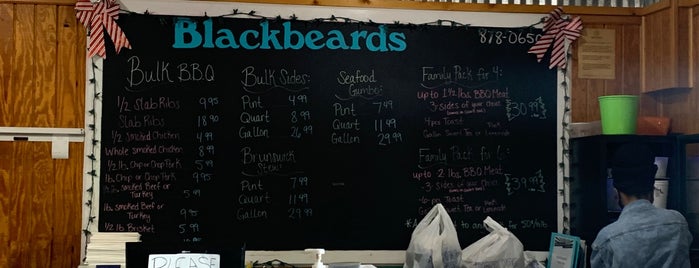 Blackbeards
878-0650
Bulk BBQ
1/2 Slab Ribs 9.95
Slab Ribs 18.90
1/2 Smoked Chicken 4.99
Whole Smoked Chicken 8.99
1/2 lb. Chip or Chop Pork 5.49
lb. Chip or Chop Pork
1/2 lb. Smoked Beef or
Turkey 5.99
lb. Smoked Beef or
Turkey 9.29
1/2 lb Brisket
Bulk Sides:
Pint 4.99
Quart 8.99
Gallon 26.99
Brunswick
Stew:
Pint 7.99
Quart 9.99
Gallon 29.99
Seafood
Gumbo:
Pint 7.49
Quart 11.49
Gallon 29.99
Family Pack for 4:
up to 1 1/2 lbs BBQ Meat
3-sides of your choice 30.99
4-pcs Toast
Gallon Sweet Tea or Lemonade
Family Pack for 6:
up to 2 lbs. BBQ Meat
3-sides of your choice 39.99
6-pc Toast
Gallon Sweet Tea or Lemonade
PLEASE